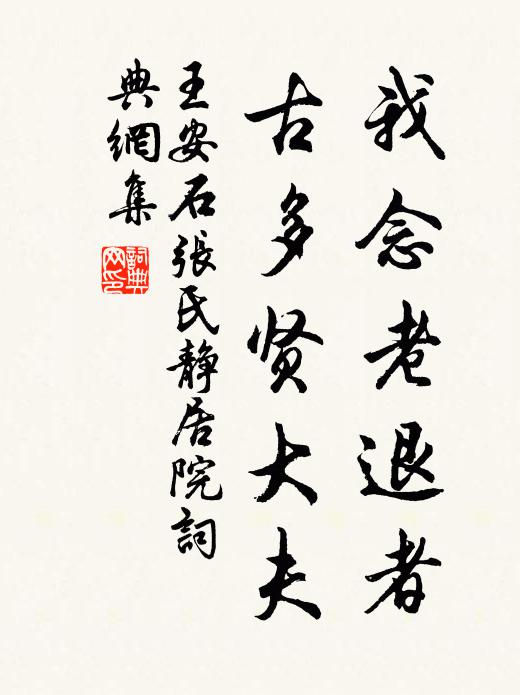 我念老退者
古多贤大夫
王安石張氏静居院詞
典網集
詞典
网印